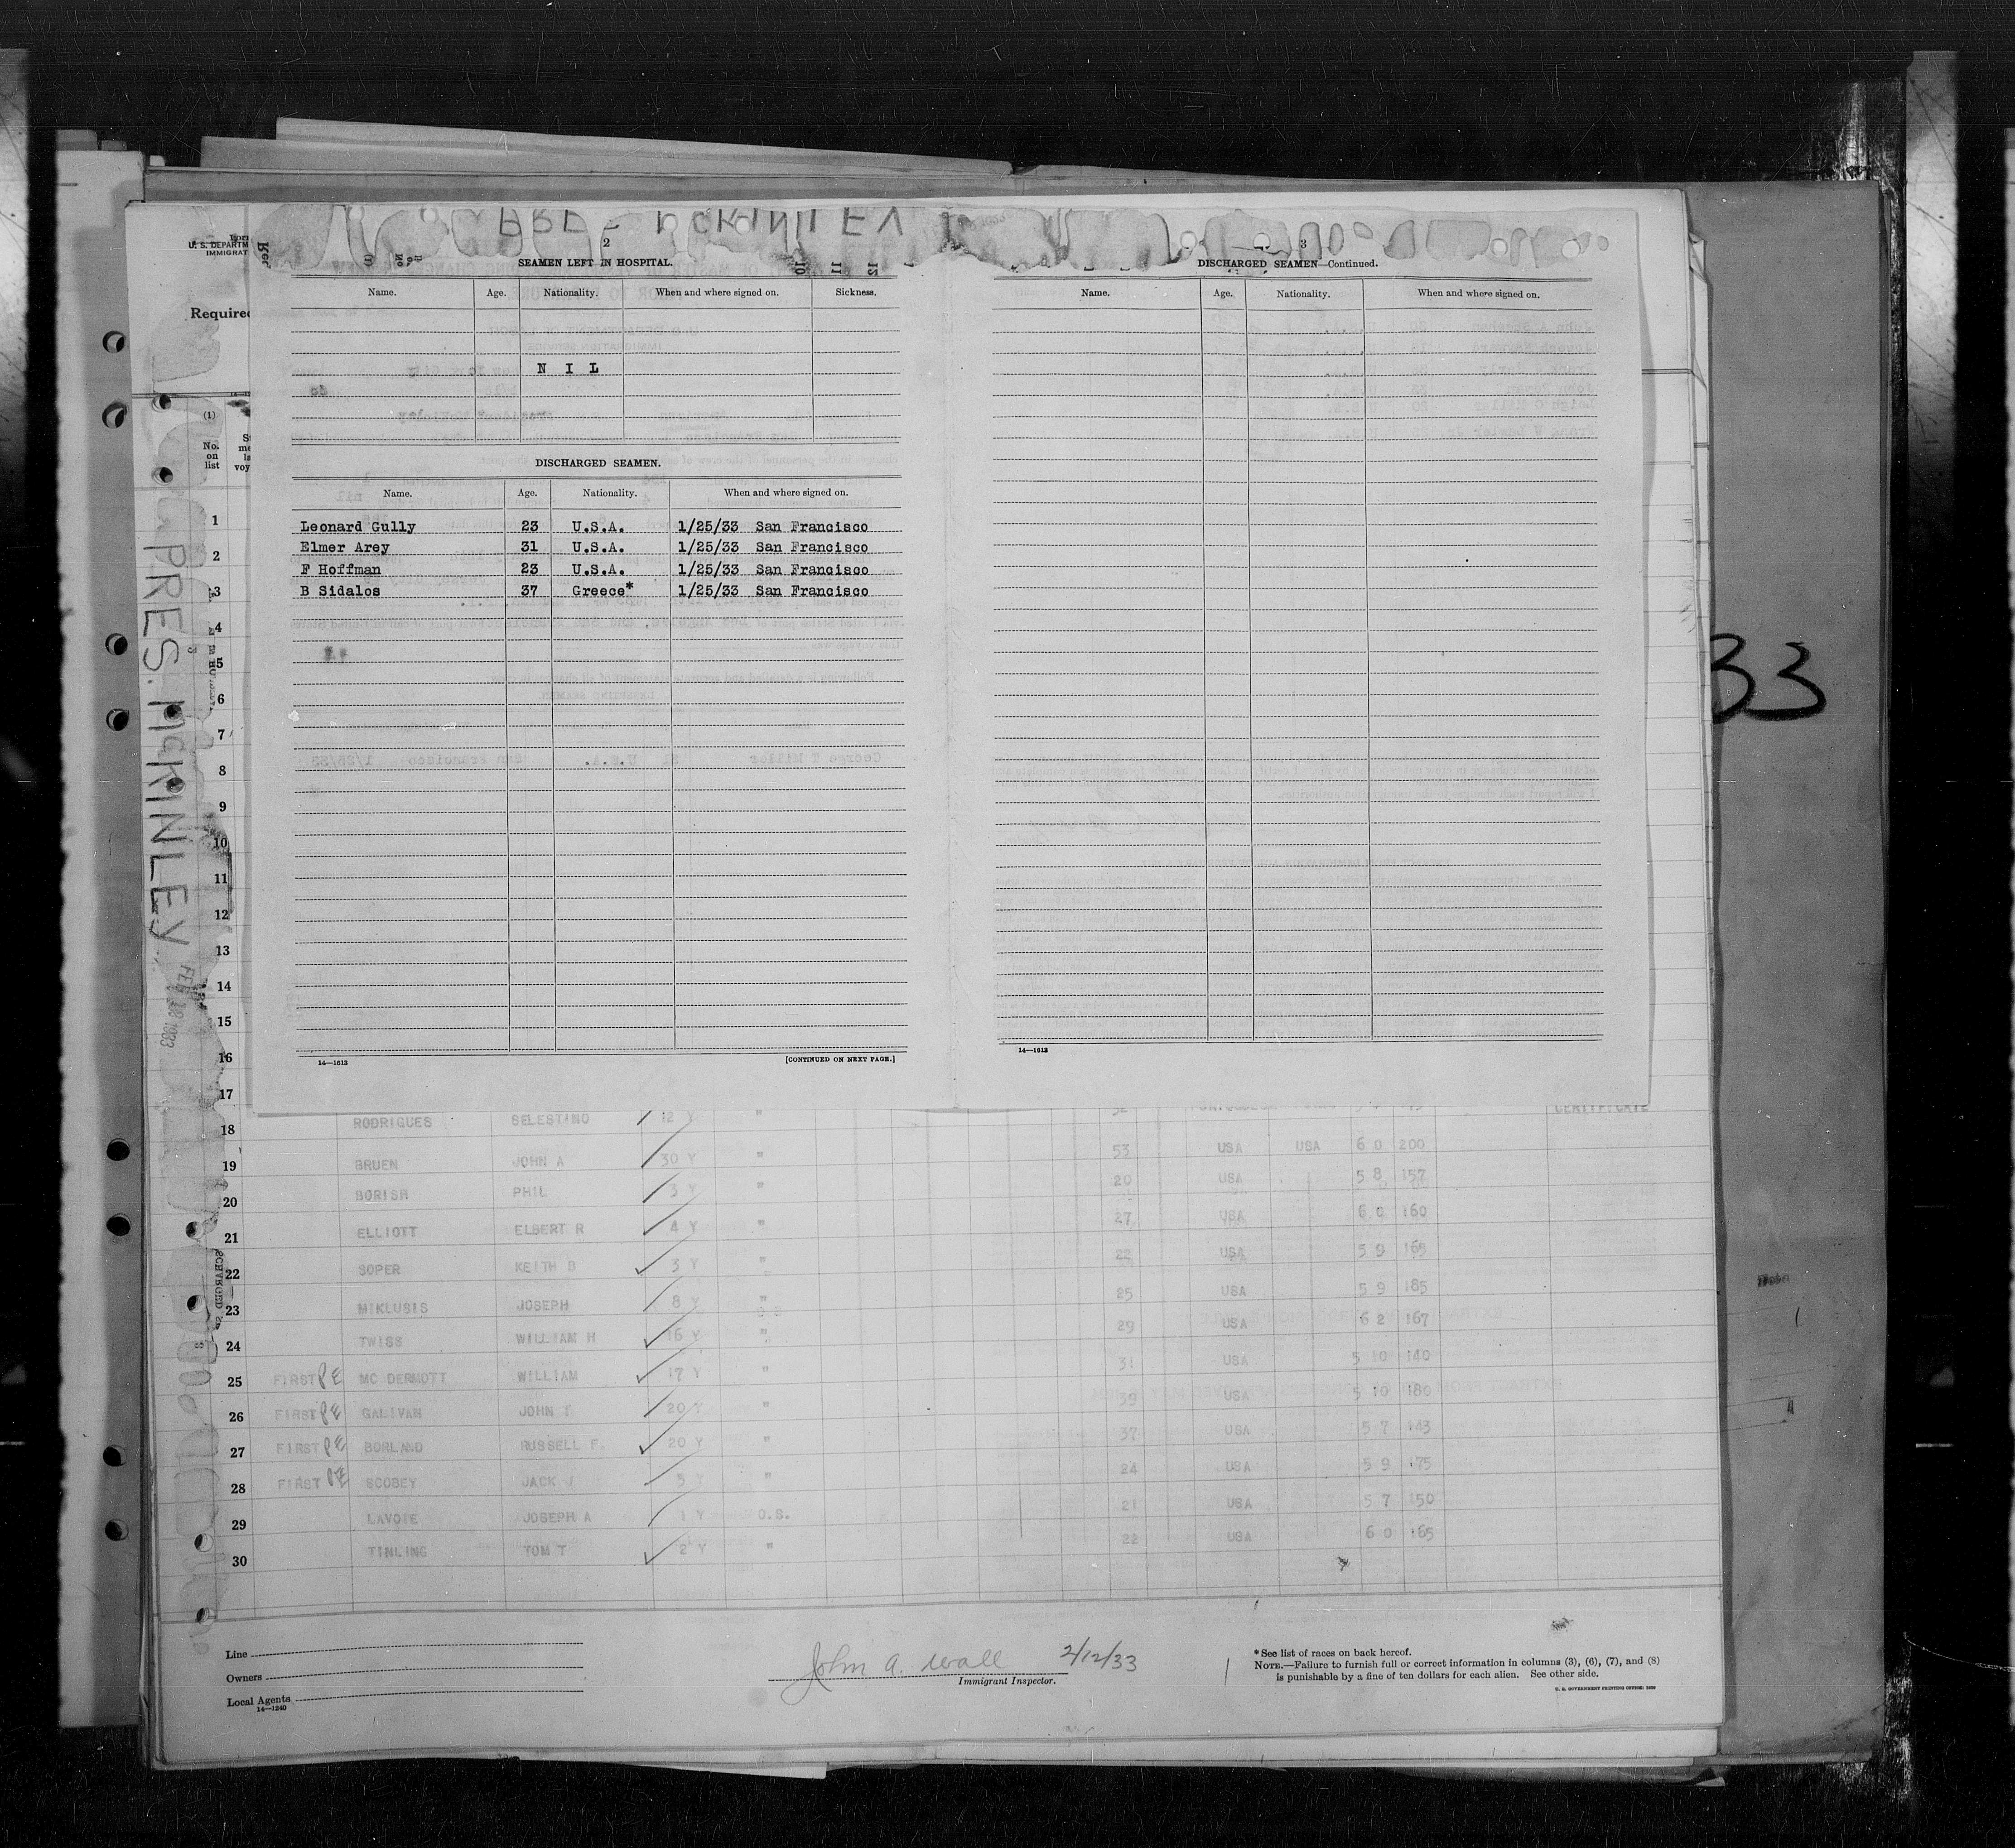 U. S. DEPARTM
IMMIGRAT
Required
(1)
No. on list
PRES. McKINLEY
FEB 1933
2
SEAMEN LEFT IN HOSPITAL.
Name. Age. Nationality. When and where signed on. Sickness.
N I L
DISCHARGED SEAMEN.
Name. Age. Nationality. When and where signed on.
Leonard Gully 23 U.S.A. 1/25/33 San Francisco
Elmer Arey 31 U.S.A. 1/25/33 San Francisco
F Hoffman 23 U.S.A. 1/25/33 San Francisco
B Sidalos 37 Greece* 1/25/33 San Francisco
14—1613 [CONTINUED ON NEXT PAGE.]
3
DISCHARGED SEAMEN—Continued.
Name. Age. Nationality. When and where signed on.
14—1613
33
1
2
3
4
5
6
7
8
9
10
11
12
13
14
15
16
17
18 RODRIGUES SELESTINO 12 Y " CERTIFICATE
19 BRUEN JOHN A 30 Y " 53 USA USA 6 0 200
20 BORISH PHIL 3 Y " 20 USA 5 8 157
21 ELLIOTT ELBERT R 4 Y " 27 USA 6 0 160
22 SOPER KEITH B 3 Y " 22 USA 5 9 165
23 MIKLUSIS JOSEPH 8 Y " 25 USA 5 9 185
24 TWISS WILLIAM H 16 Y " 29 USA 6 2 167
25 FIRST PE MC DERMOTT WILLIAM 17 Y " 31 USA 5 10 140
26 FIRST PE GALIVAN JOHN T 20 Y " 39 USA 5 10 180
27 FIRST PE BORLAND RUSSELL F. 20 Y " 37 USA 5 7 143
28 FIRST PE SCOBEY JACK J 5 Y " 24 USA 5 9 175
29 LAVOIE JOSEPH A 1 Y O.S. 21 USA 5 7 150
30 TINLING TOM T 2 Y " 22 USA 6 0 165
Line
Owners
Local Agents
14—1240
John A. Wall 2/12/33
Immigrant Inspector.
* See list of races on back hereof.
NOTE.—Failure to furnish full or correct information in columns (3), (6), (7), and (8)
is punishable by a fine of ten dollars for each alien. See other side.
U. S. GOVERNMENT PRINTING OFFICE: